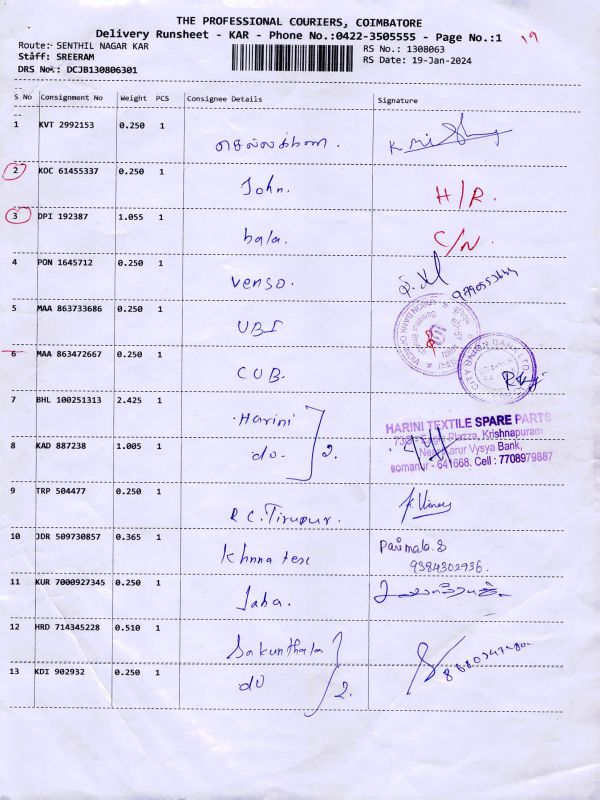 THE PROFESSIONAL COURIERS, COIMBATORE
Delivery Runsheet - KAR - Phone No.:0422-3505555 - Page No.:1
19
Route: SENTHIL NAGAR KAR
RS No.: 1308063
Staff: SREERAM
RS Date: 19-Jan-2024
DRS No.: DCJB130806301
S No Consignment No Weight PCS Consignee Details Signature
1 KVT 2992153 0.250 1
2 KOC 61455337 0.250 1 John. H/R.
3 DPI 192387 1.055 1 bala. C/N.
4 PON 1645712 0.250 1 Venso.
5 MAA 863733686 0.250 1 UBI
6 MAA 863472667 0.250 1 CUB.
7 BHL 100251313 2.425 1 Harini
HARINI TEXTILE SPARE PARTS
Plazza, Krishnapuram
8 KAD 887238 1.005 1 do. 2.
Near Karur Vysya Bank,
somanur - 641668. Cell : 7708979887
9 TRP 504477 0.250 1 R.C. Tirupur. K. Vinoy
10 JDR 509730857 0.365 1 Khnna tex Parimala.S
9384302936.
11 KUR 7000927345 0.250 1 Jaba.
12 HRD 714345228 0.510 1 Sakunthala
13 KDI 902932 0.250 1 do 2.